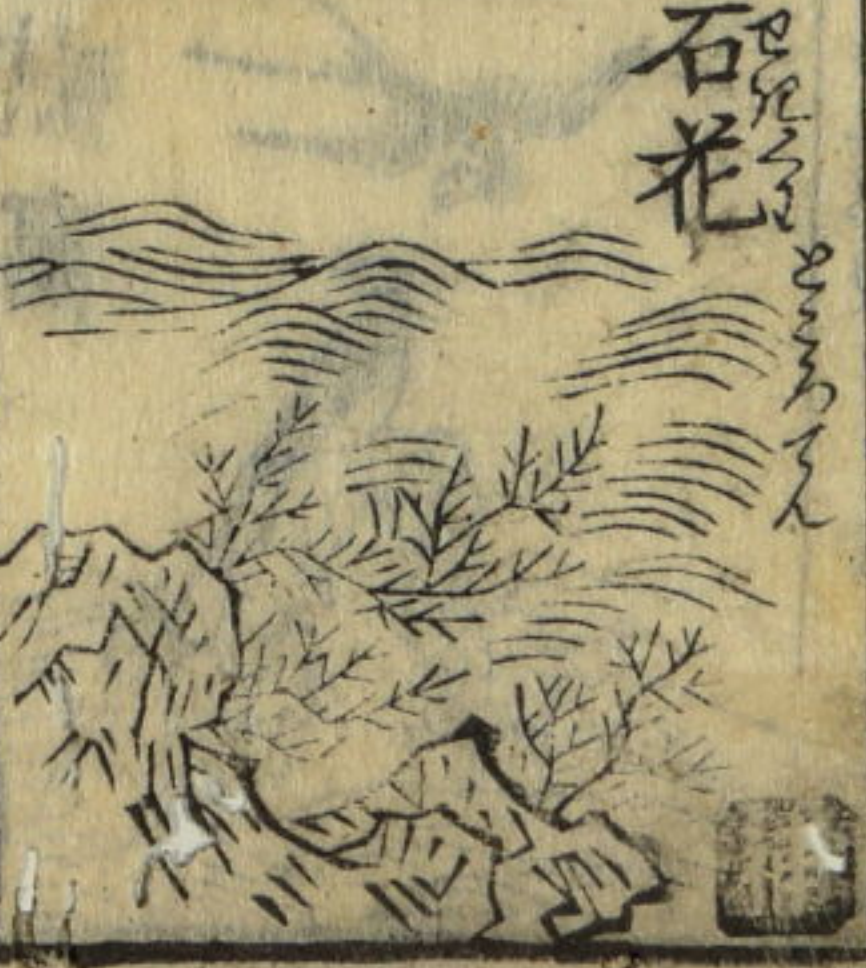 石花
せきくは
ところてん